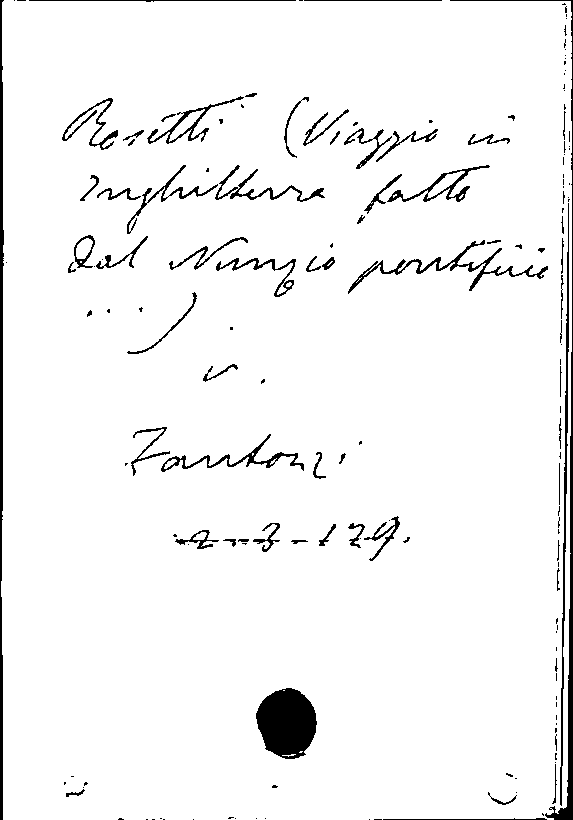 Rosetti (Viaggio in
Inghilterra fatto
dal Nunzio pontificio
...)
v.
Fantozzi
2-3-129.